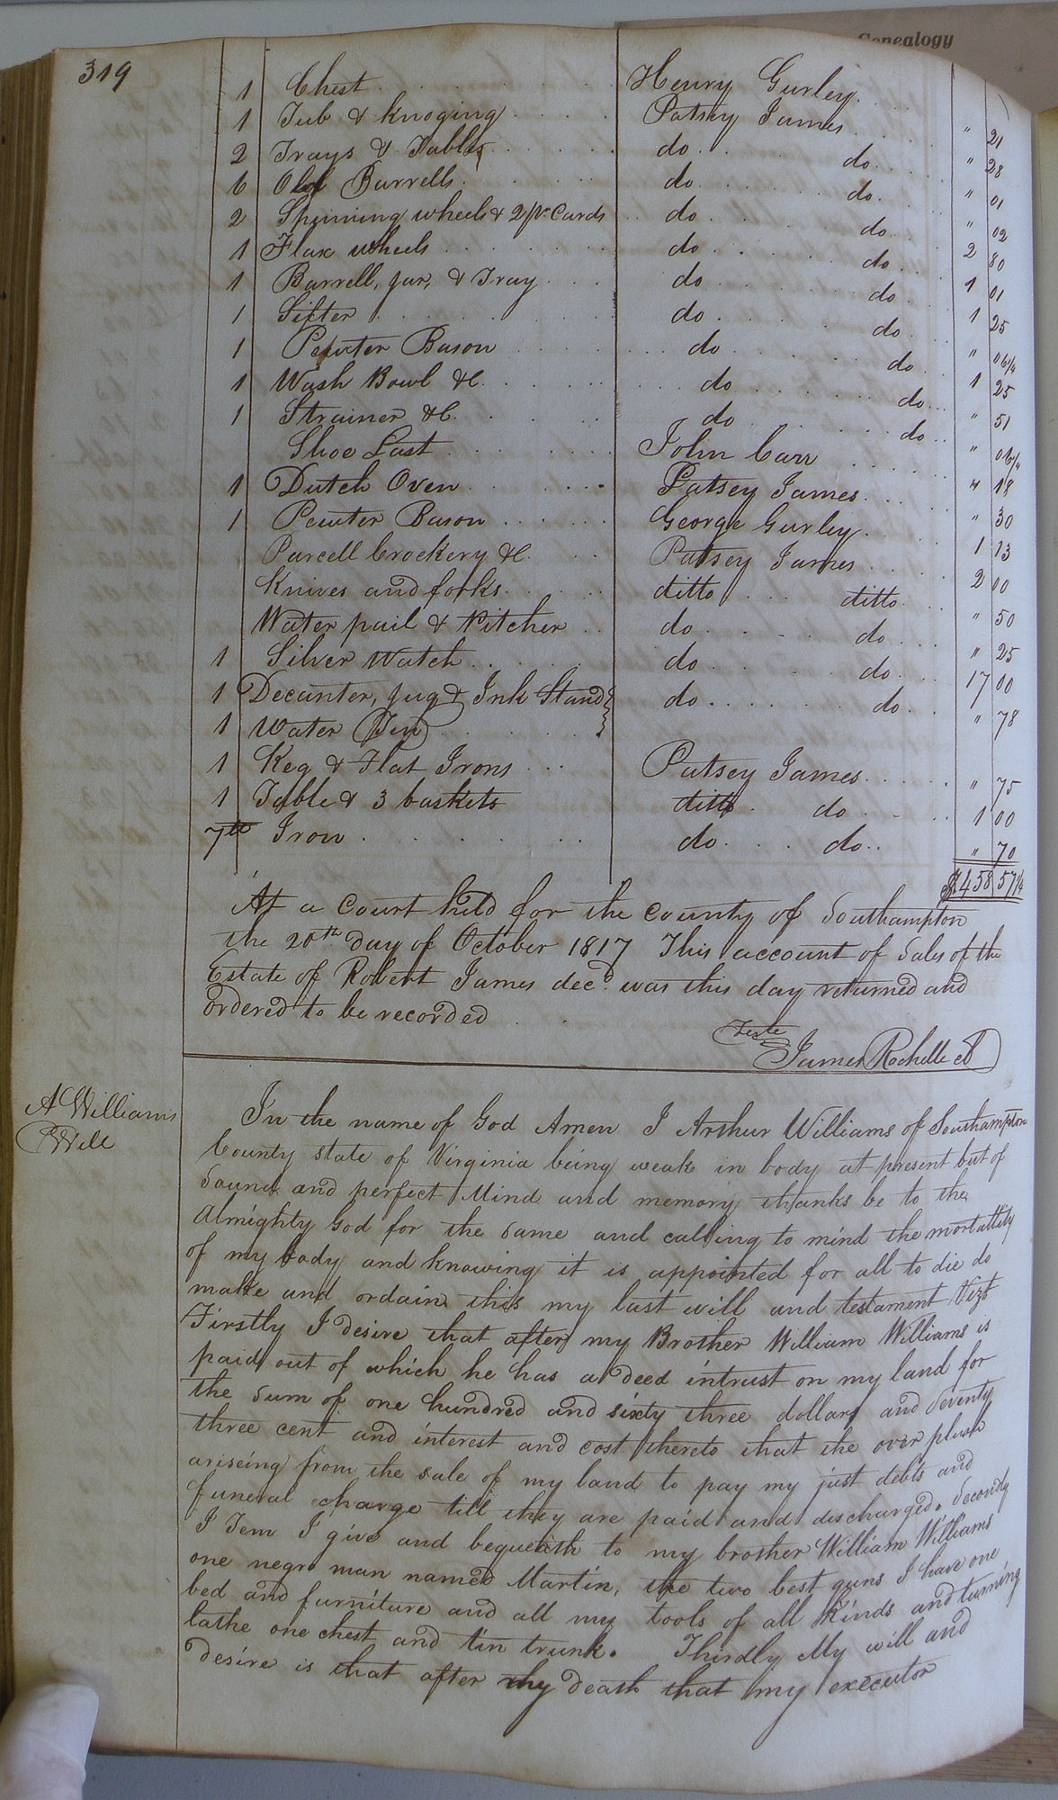 Genealogy
319
1 Chest Henry Gurley " 21
1 Tub & Knoging Patsey James " 28
2 Trays & Table do do " 01
6 Old Barrells do do " 02
2 Spinning wheels & 2 pr Cards do do 2 80
1 Flax wheels do do 1 01
1 Barrell, jar, & Tray do do 1 25
1 Sifter do do " "6 1/4
1 Pewter Bason do do 1 25
1 Wash Bowl &C. do do " 51
1 Strainer &C. do do " 06 1/4
Shoe Last John Carr " 18
1 Dutch Oven Patsey James " 30
1 Pewter Bason George Gurley 1 13
Parcell Crockery &C. Patsey James 2 00
Knives and forks ditto ditto " 50
Water pail & Pitcher do do " 25
1 Silver Watch do do 17 00
1 Decanter, jug & Ink Stand } do do " 78
1 Water
1 Keg & Flat Irons Patsey James " 75
1 Table & 3 baskets ditto do 1 00
Iron do do " 70
$458 57 1/4
At a Court held for the County of Southampton
the 20th day of October 1817 This account of Sales of the
Estate of Robert James decd. was this day returned and
ordered to be recorded
Teste
James Rochelle
A Williams
Will
In the name of God Amen I Arthur Williams of Southampton
County state of Virginia being weak in body at present but of
Sound and perfect Mind and memory thanks be to the
Almighty God for the same and calling to mind the mortallity
of my body and knowing it is appointed for all to die do
make and ordain this my last will and testament Vizt
Firstly I desire that after my Brother William Williams is
paid out of which he has a deed intrust on my land for
the sum of one hundred and sixty three dollars and Seventy
three cent and interest and cost thereto that the over plush
ariseing from the sale of my land to pay my just debts and
funeral charge till they are paid and discharged. Secondly
I Tem I give and bequeath to my brother William Williams
one negro man named Martin, the two best guns I have one
bed and furniture and all my tools of all kinds and turning
lathe one chest and tin trunk. Thirdly My will and
desire is that after my death that my executor